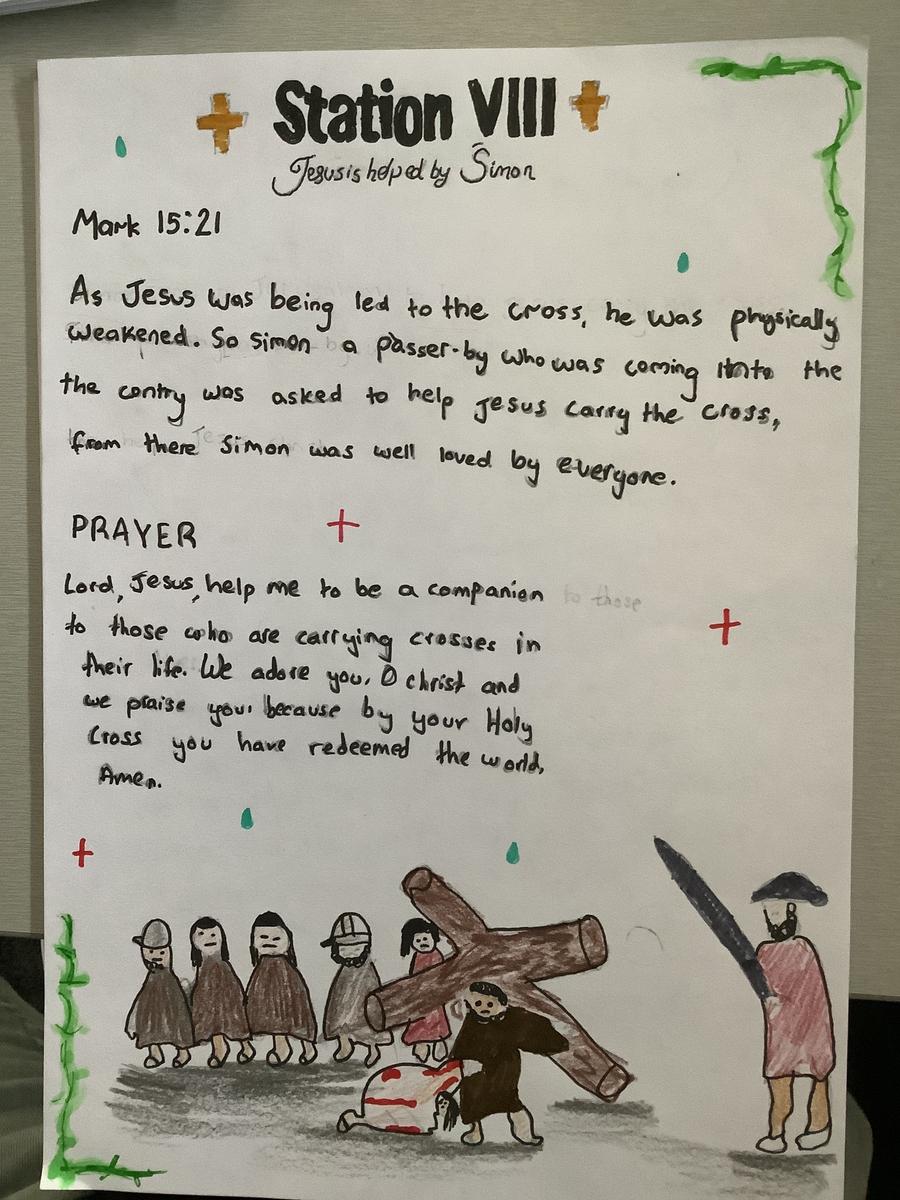 Station VIII
Jesus is helped by Simon
Mark 15:21
As Jesus was being led to the cross, he was physically
weakened. So simon a passer-by who was coming into the
the contry was asked to help Jesus carry the cross,
from there Simon was well loved by everyone.
PRAYER
Lord, Jesus, help me to be a companion to those
to those who are carrying crosses in
their life. We adore you, O christ and
we praise you, because by your Holy
Cross you have redeemed the world,
Amen.